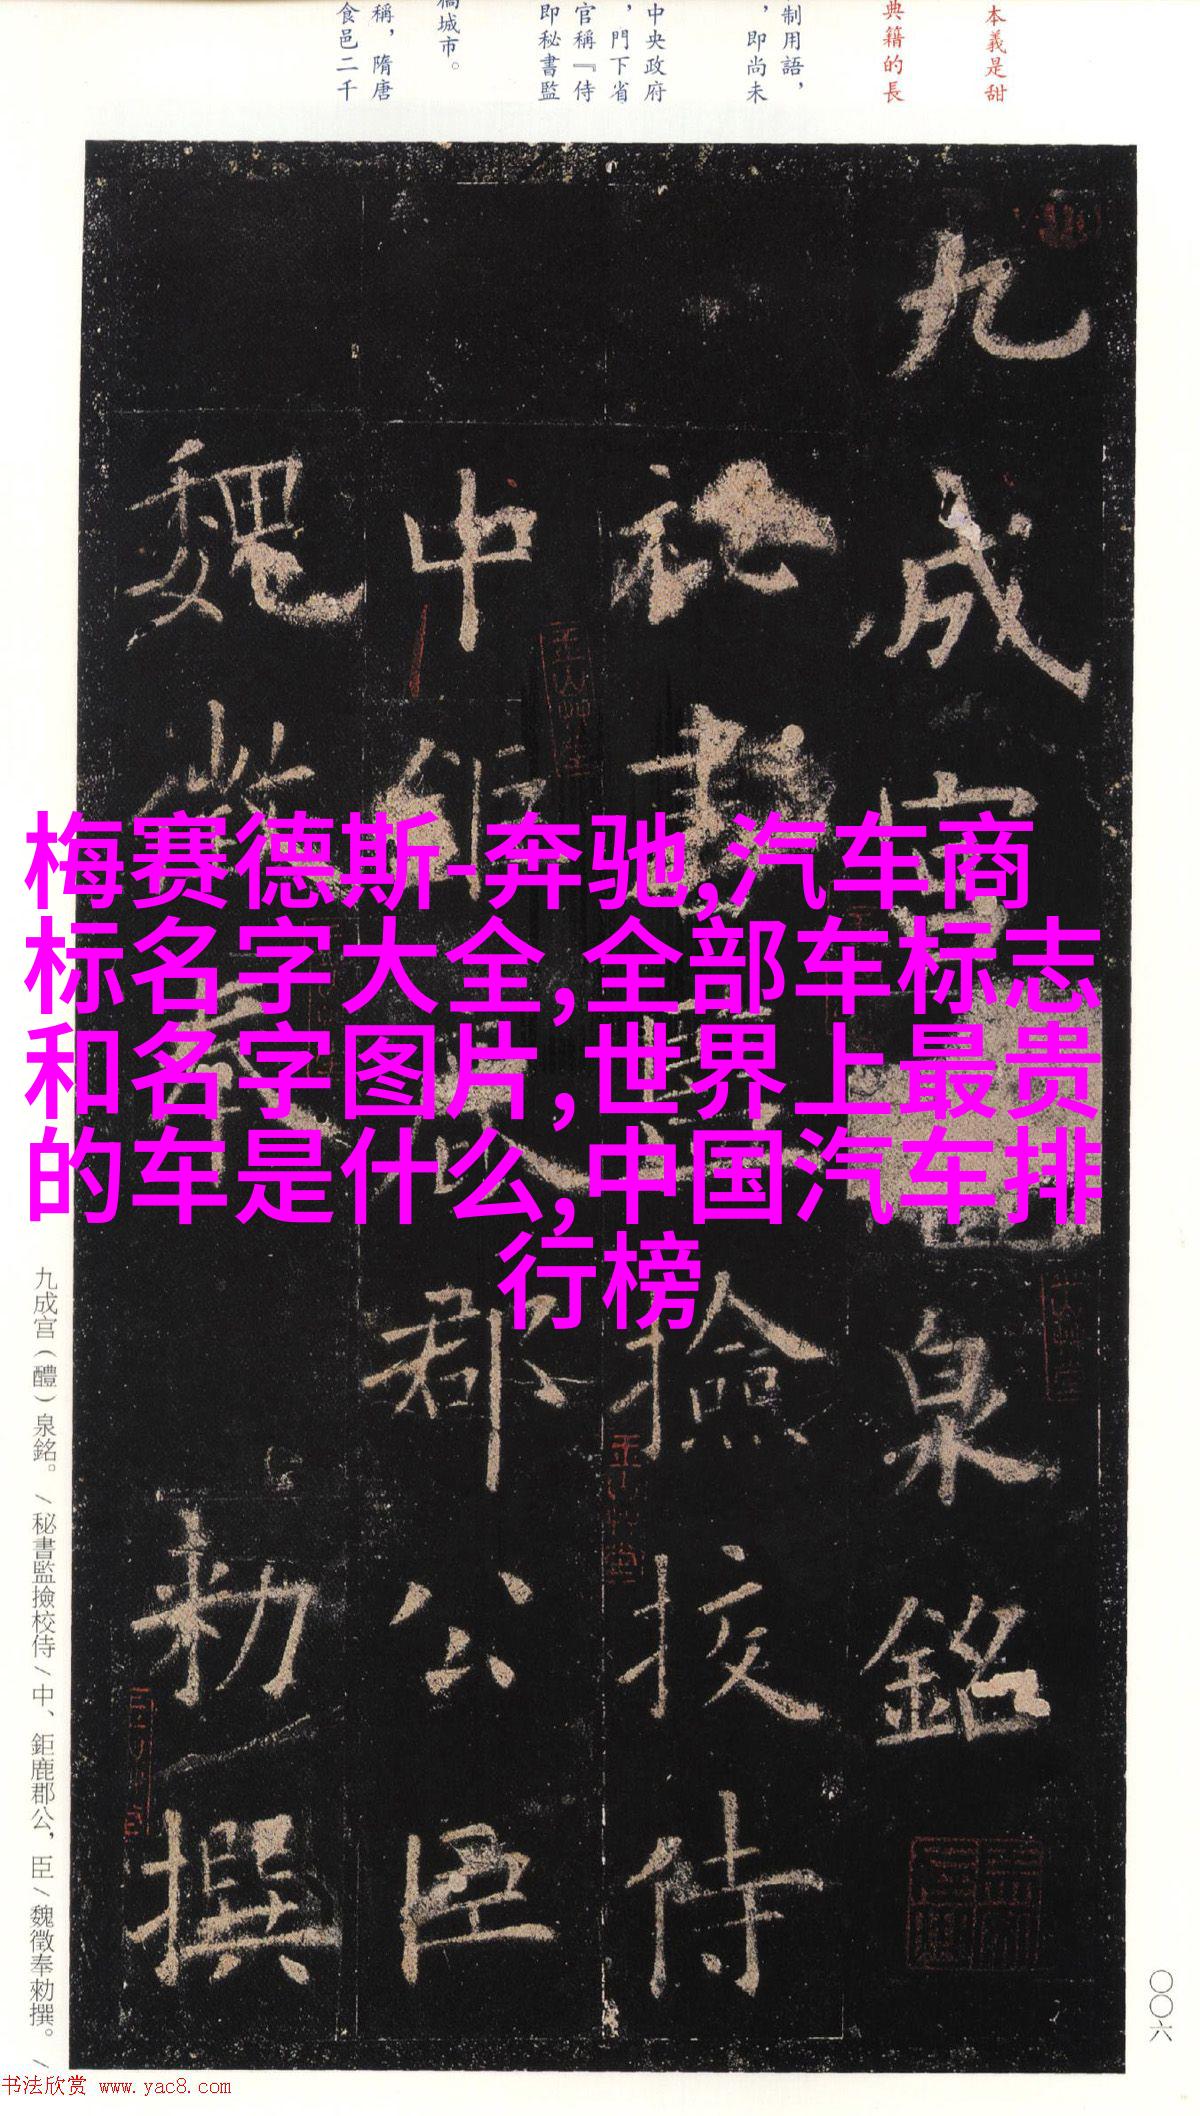 本義是甜
典籍的長
制用語，
，即尚未
中央政府
，門下省
官稱『侍
即秘書監
城市。
稱，隋唐
食邑二千
九成宮
泉銘
祕書監撿挍侍
中
郡公臣
魏
勑撰
梅赛德斯-奔驰,汽车商
标名字大全,全部车标志
和名字图片,世界上最贵
的车是什么,中国汽车排
行榜
九成宮（醴）泉銘。/秘書監撿校侍/中、鉅鹿郡公，臣/魏徵奉勑撰。/
〇〇六
书法欣赏 www.yac8.com